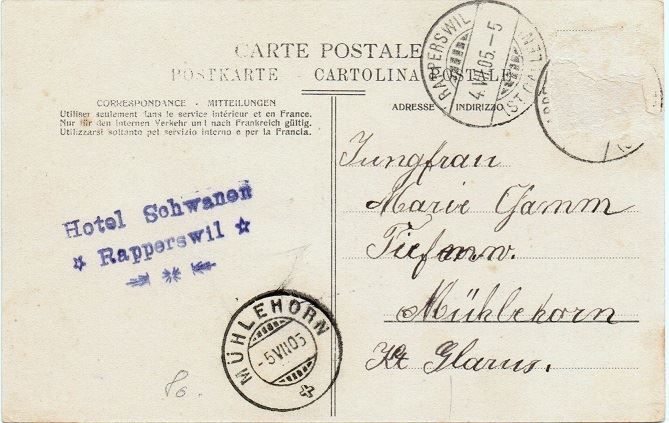 CARTE POSTALE
POSTKARTE - CARTOLINA POSTALE
CORRESPONDANCE - MITTEILUNGEN
Utiliser seulement dans le service intérieur et en France.
Nur für den internen Verkehr und nach Frankreich gültig.
Utilizzarsi soltanto pel servizio interno e per la Francia.
ADRESSE INDIRIZZO
RAPPERSWIL
4.VII.05.-5
(ST. GALLEN)
Jungfrau
Marie Gamm
Mühlehorn
Kt Glarus.
Hotel Schwanen
Rapperswil
MÜHLEHORN
-5.VII.05